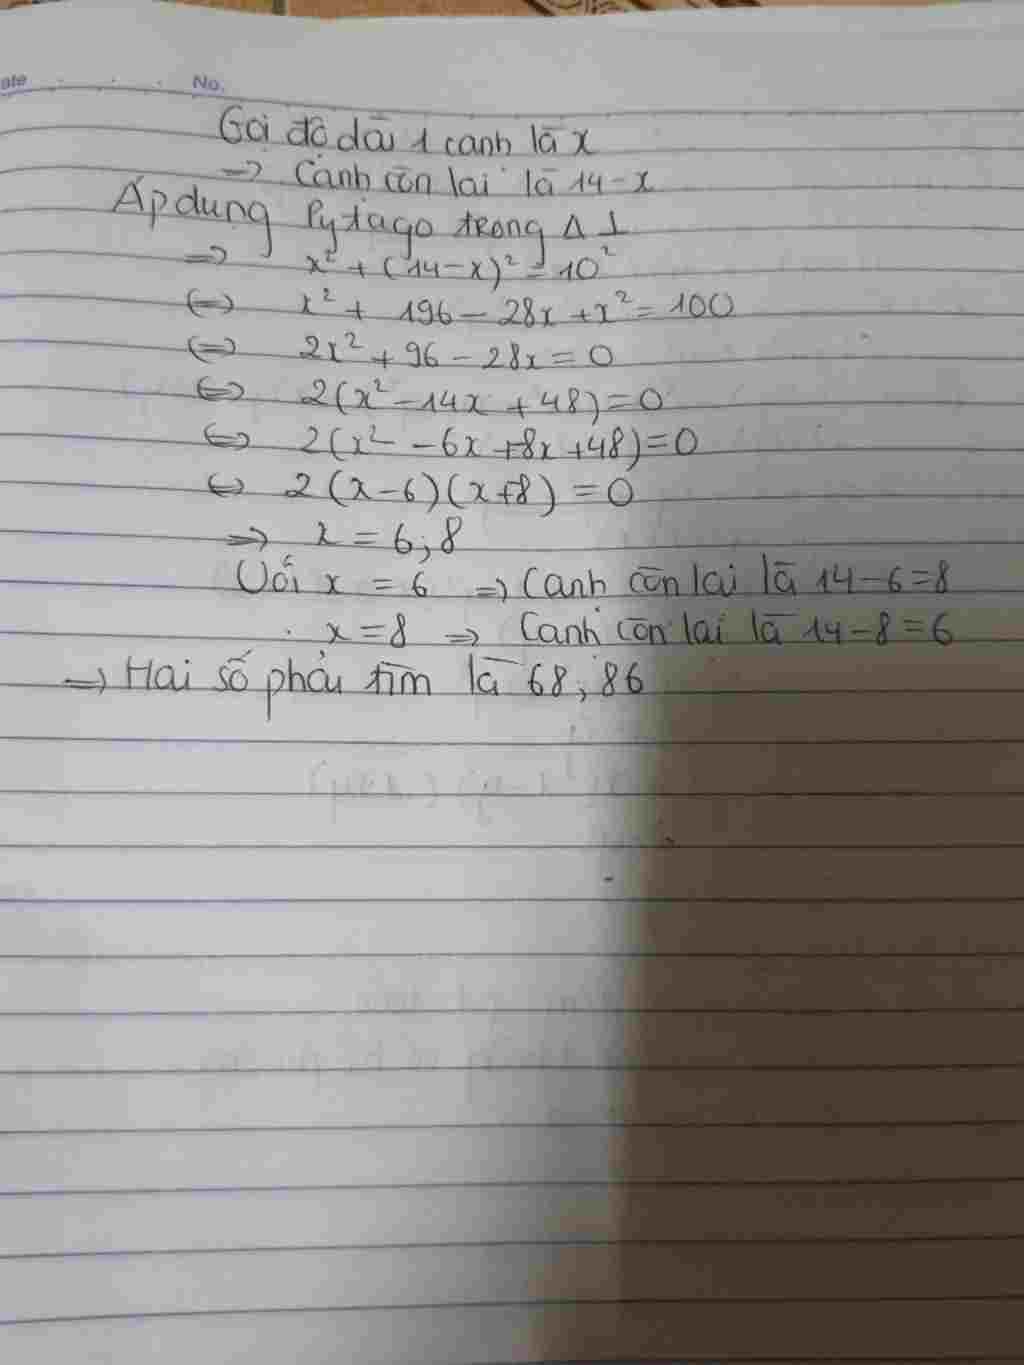 ate No.
Gọi độ dài 1 cạnh là x
=> Cạnh còn lại là 14-x
Áp dụng Pytago trong Δ ⊥
=> x² + (14-x)² = 10²
<=> x² + 196 - 28x + x² = 100
<=> 2x² + 96 - 28x = 0
<=> 2(x² - 14x + 48) = 0
<=> 2(x² - 6x + 8x + 48) = 0
<=> 2(x-6)(x+8) = 0
=> x = 6; 8
Với x = 6 => Cạnh còn lại là 14-6=8
x = 8 => Cạnh còn lại là 14-8=6
=> Hai số phải tìm là 68; 86